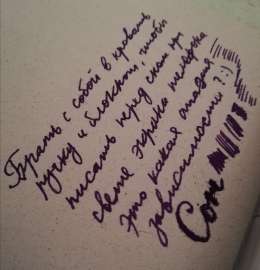 Брать с собой в кровать
ручку и блокнот, чтобы
писать перед сном при
свете экрана телефона
Это какая стадия
зависимости? :)
Сон